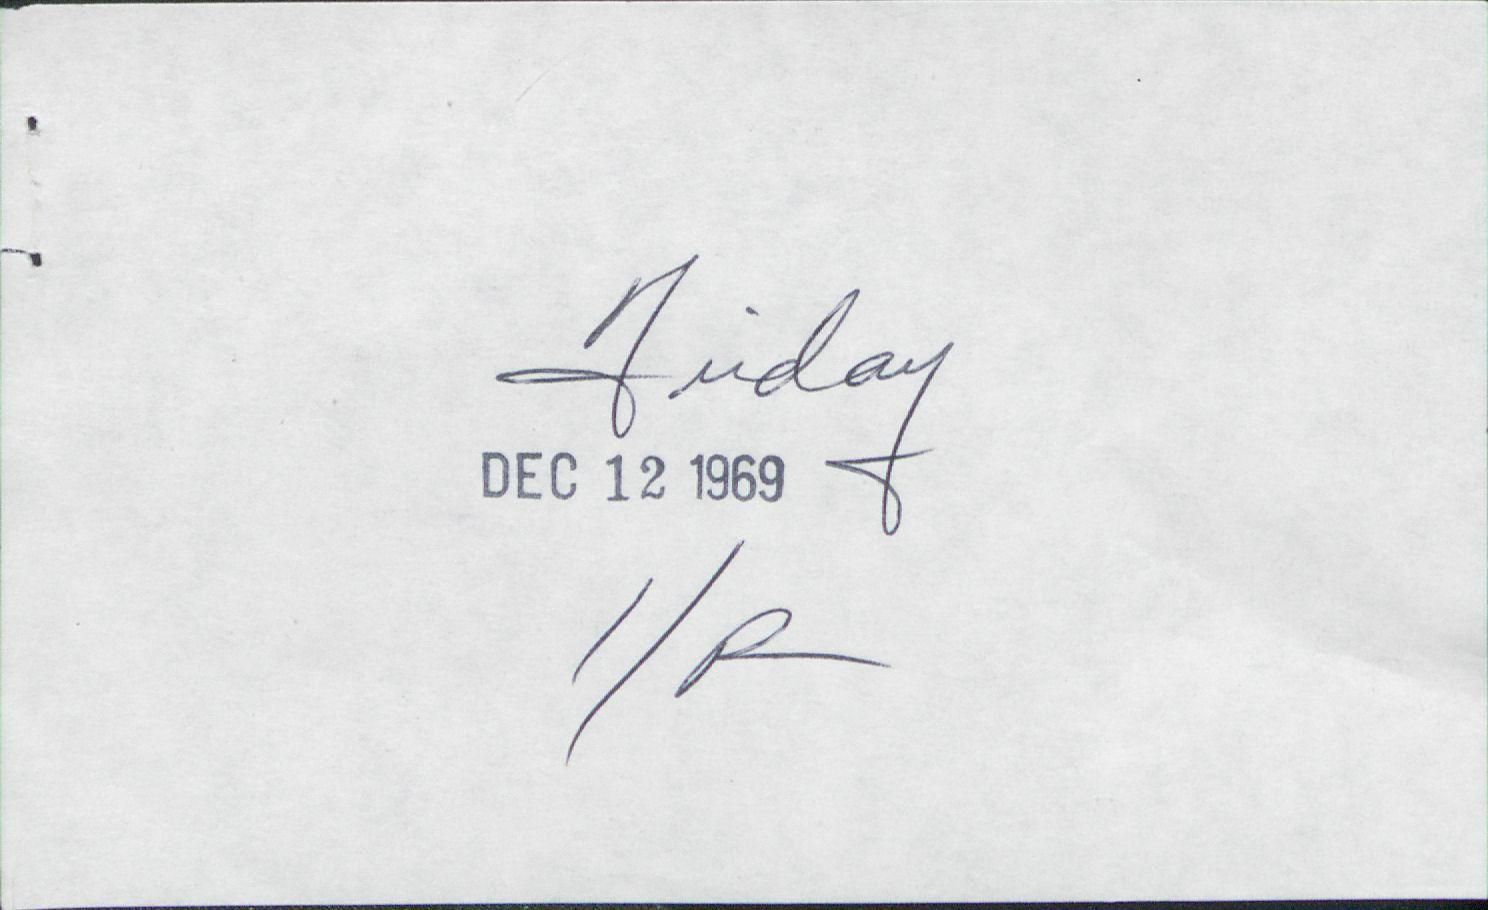 Friday
DEC 12 1969
1/R